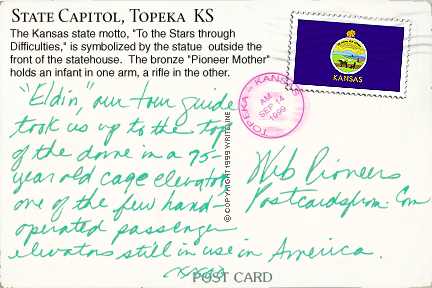 STATE CAPITOL, TOPEKA KS
The Kansas state motto, "To the Stars through
Difficulties," is symbolized by the statue outside the
front of the statehouse. The bronze "Pioneer Mother"
holds an infant in one arm, a rifle in the other.
KANSAS
TOPEKA - KANSAS
AM
SEP 14
1999
"Eldin", our tour guide
took us up to the top
of the dome in a 75-
year old cage elevator
one of the few hand-
operated passenger
elevators still in use in America.
xoxo
© COPYRIGHT 1999 WRITE LINE
Web Pioneers
Postcardsfrom.Com
POST CARD